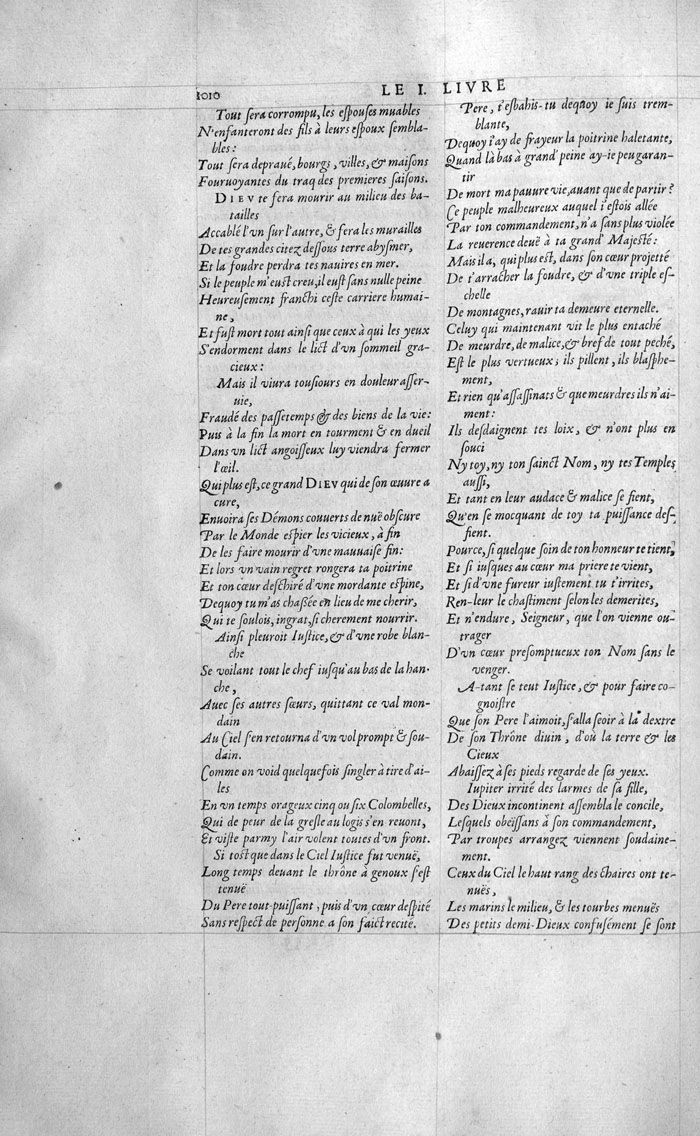 1010
LE I. LIVRE
Tout ſera corrompu, les eſpouſes muables
N'enfanteront des fils à leurs eſpoux ſembla-
bles:
Tout ſera depraué, bourgs, villes, & maiſons
Fouruoyantes du traq des premieres ſaiſons.
DIEV te ſera mourir au milieu des ba-
tailles
Accablé l'vn ſur l'autre, & fera les murailles
De tes grandes citez deſſous terre abyſmer,
Et la foudre perdra tes nauires en mer.
Si le peuple m'euſt creu, il euſt ſans nulle peine
Heureuſement franchi ceſte carriere humai-
ne,
Et fuſt mort tout ainſi que ceux à qui les yeux
S'endorment dans le lict d'vn ſommeil gra-
cieux:
Mais il viura touſiours en douleur aſſer-
uie,
Fraudé des paſſetemps & des biens de la vie:
Puis à la fin la mort en tourment & en dueil
Dans vn lict angoiſſeux luy viendra fermer
l'œil.
Qui plus eſt, ce grand DIEV qui de ſon œuure a
cure,
Enuoira ſes Démons couuerts de nuë obſcure
Par le Monde eſpier les vicieux, à fin
De les faire mourir d'vne mauuaiſe fin:
Et lors vn vain regret rongera ta poitrine
Et ton cœur deſchiré d'vne mordante eſpine,
Dequoy tu m'as chaſſée en lieu de me cherir,
Qui te ſoulois, ingrat, ſi cherement nourrir.
Ainſi pleuroit Iuſtice, & d'vne robe blan-
che
Se voilant tout le chef iuſqu'au bas de la han-
che,
Auec ſes autres ſœurs, quittant ce val mon-
dain
Au Ciel ſ'en retourna d'vn vol prompt & ſou-
dain.
Comme on void quelquefois ſingler à tire d'ai-
les
En vn temps orageux cinq ou ſix Colombelles,
Qui de peur de la greſle au logis s'en reuont,
Et viſte parmy l'air volent toutes d'vn front.
Si toſt que dans le Ciel Iuſtice fut venuë,
Long temps deuant le thrône à genoux ſ'eſt
tenuë
Du Pere tout-puiſſant, puis d'vn cœur deſpité
Sans reſpect de perſonne a ſon faict recité.
Pere, t'eſbahis-tu dequoy ie ſuis trem-
blante,
Dequoy i'ay de frayeur la poitrine haletante,
Quand là bas à grand' peine ay-ie peu garan-
tir
De mort ma pauure vie, auant que de partir?
Ce peuple malheureux auquel i'eſtois allée
Par ton commandement, n'a ſans plus violée
La reuerence deuë à ta grand' Majeſté:
Mais il a, qui plus eſt, dans ſon cœur projetté
De t'arracher la foudre, & d'vne triple eſ-
chelle
De montagnes, rauir ta demeure eternelle.
Celuy qui maintenant vit le plus entaché
De meurdre, de malice, & bref de tout peché,
Eſt le plus vertueux; ils pillent, ils blaſphe-
ment,
Et rien qu'aſſaſſinats & que meurdres ils n'ai-
ment:
Ils deſdaignent tes loix, & n'ont plus en
ſouci
Ny toy, ny ton ſainct Nom, ny tes Temples
auſſi,
Et tant en leur audace & malice ſe fient,
Qu'en ſe mocquant de toy ta puiſſance deſ-
fient.
Pource, ſi quelque ſoin de ton honneur te tient,
Et ſi iuſques au cœur ma priere te vient,
Et ſi d'vne fureur iuſtement tu t'irrites,
Ren-leur le chaſtiment ſelon les demerites,
Et n'endure, Seigneur, que l'on vienne ou-
trager
D'vn cœur preſomptueux ton Nom ſans le
venger.
A-tant ſe teut Iuſtice, & pour faire co-
gnoiſtre
Que ſon Pere l'aimoit, ſ'alla ſeoir à la dextre
De ſon Thrône diuin, d'où la terre & les
Cieux
Abaiſſez à ſes pieds regarde de ſes yeux.
Iupiter irrité des larmes de ſa fille,
Des Dieux incontinent aſſembla le concile,
Leſquels obeïſſans à ſon commandement,
Par troupes arrangez viennent ſoudaine-
ment.
Ceux du Ciel le haut rang des chaires ont te-
nuës,
Les marins le milieu, & les tourbes menuës
Des petits demi-Dieux confuſément ſe ſont